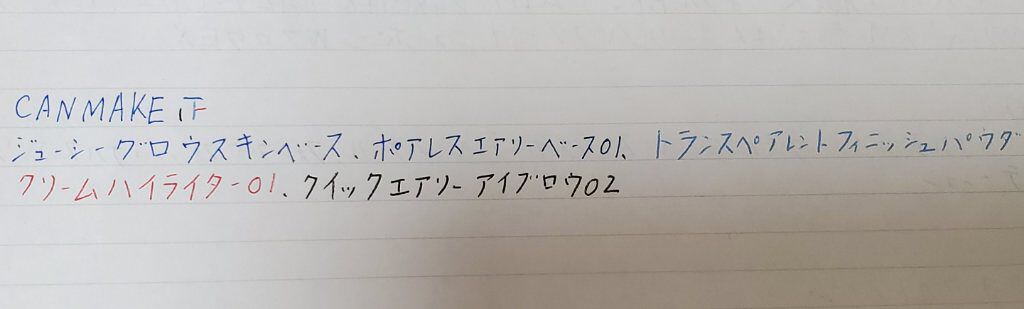 CANMAKE 正
ジューシーグロウスキンベース、ポアレスエアリーベース01、トランスペアレントフィニッシュパウダ
クリームハイライター01、クイックエアリーアイブロウ02